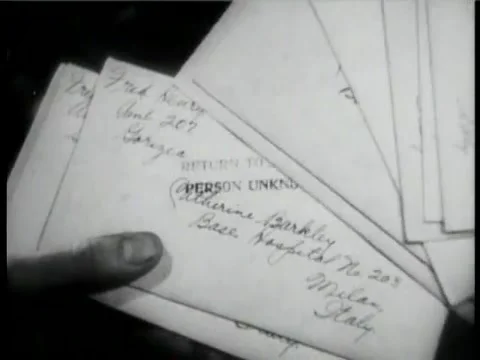 Fred Henry
Amb. 207
Gorizia
RETURN TO
PERSON UNKNO
Catherine Barkley
Base Hospital No 203
Milan
Italy